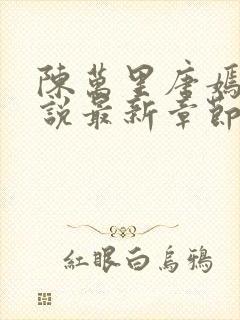 陳萬里唐嫣
說最新章節
紅眼白烏鴉